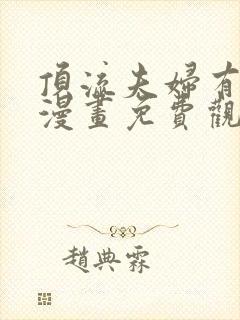 頂流夫婦有
漫畫免費觀
趙典霖